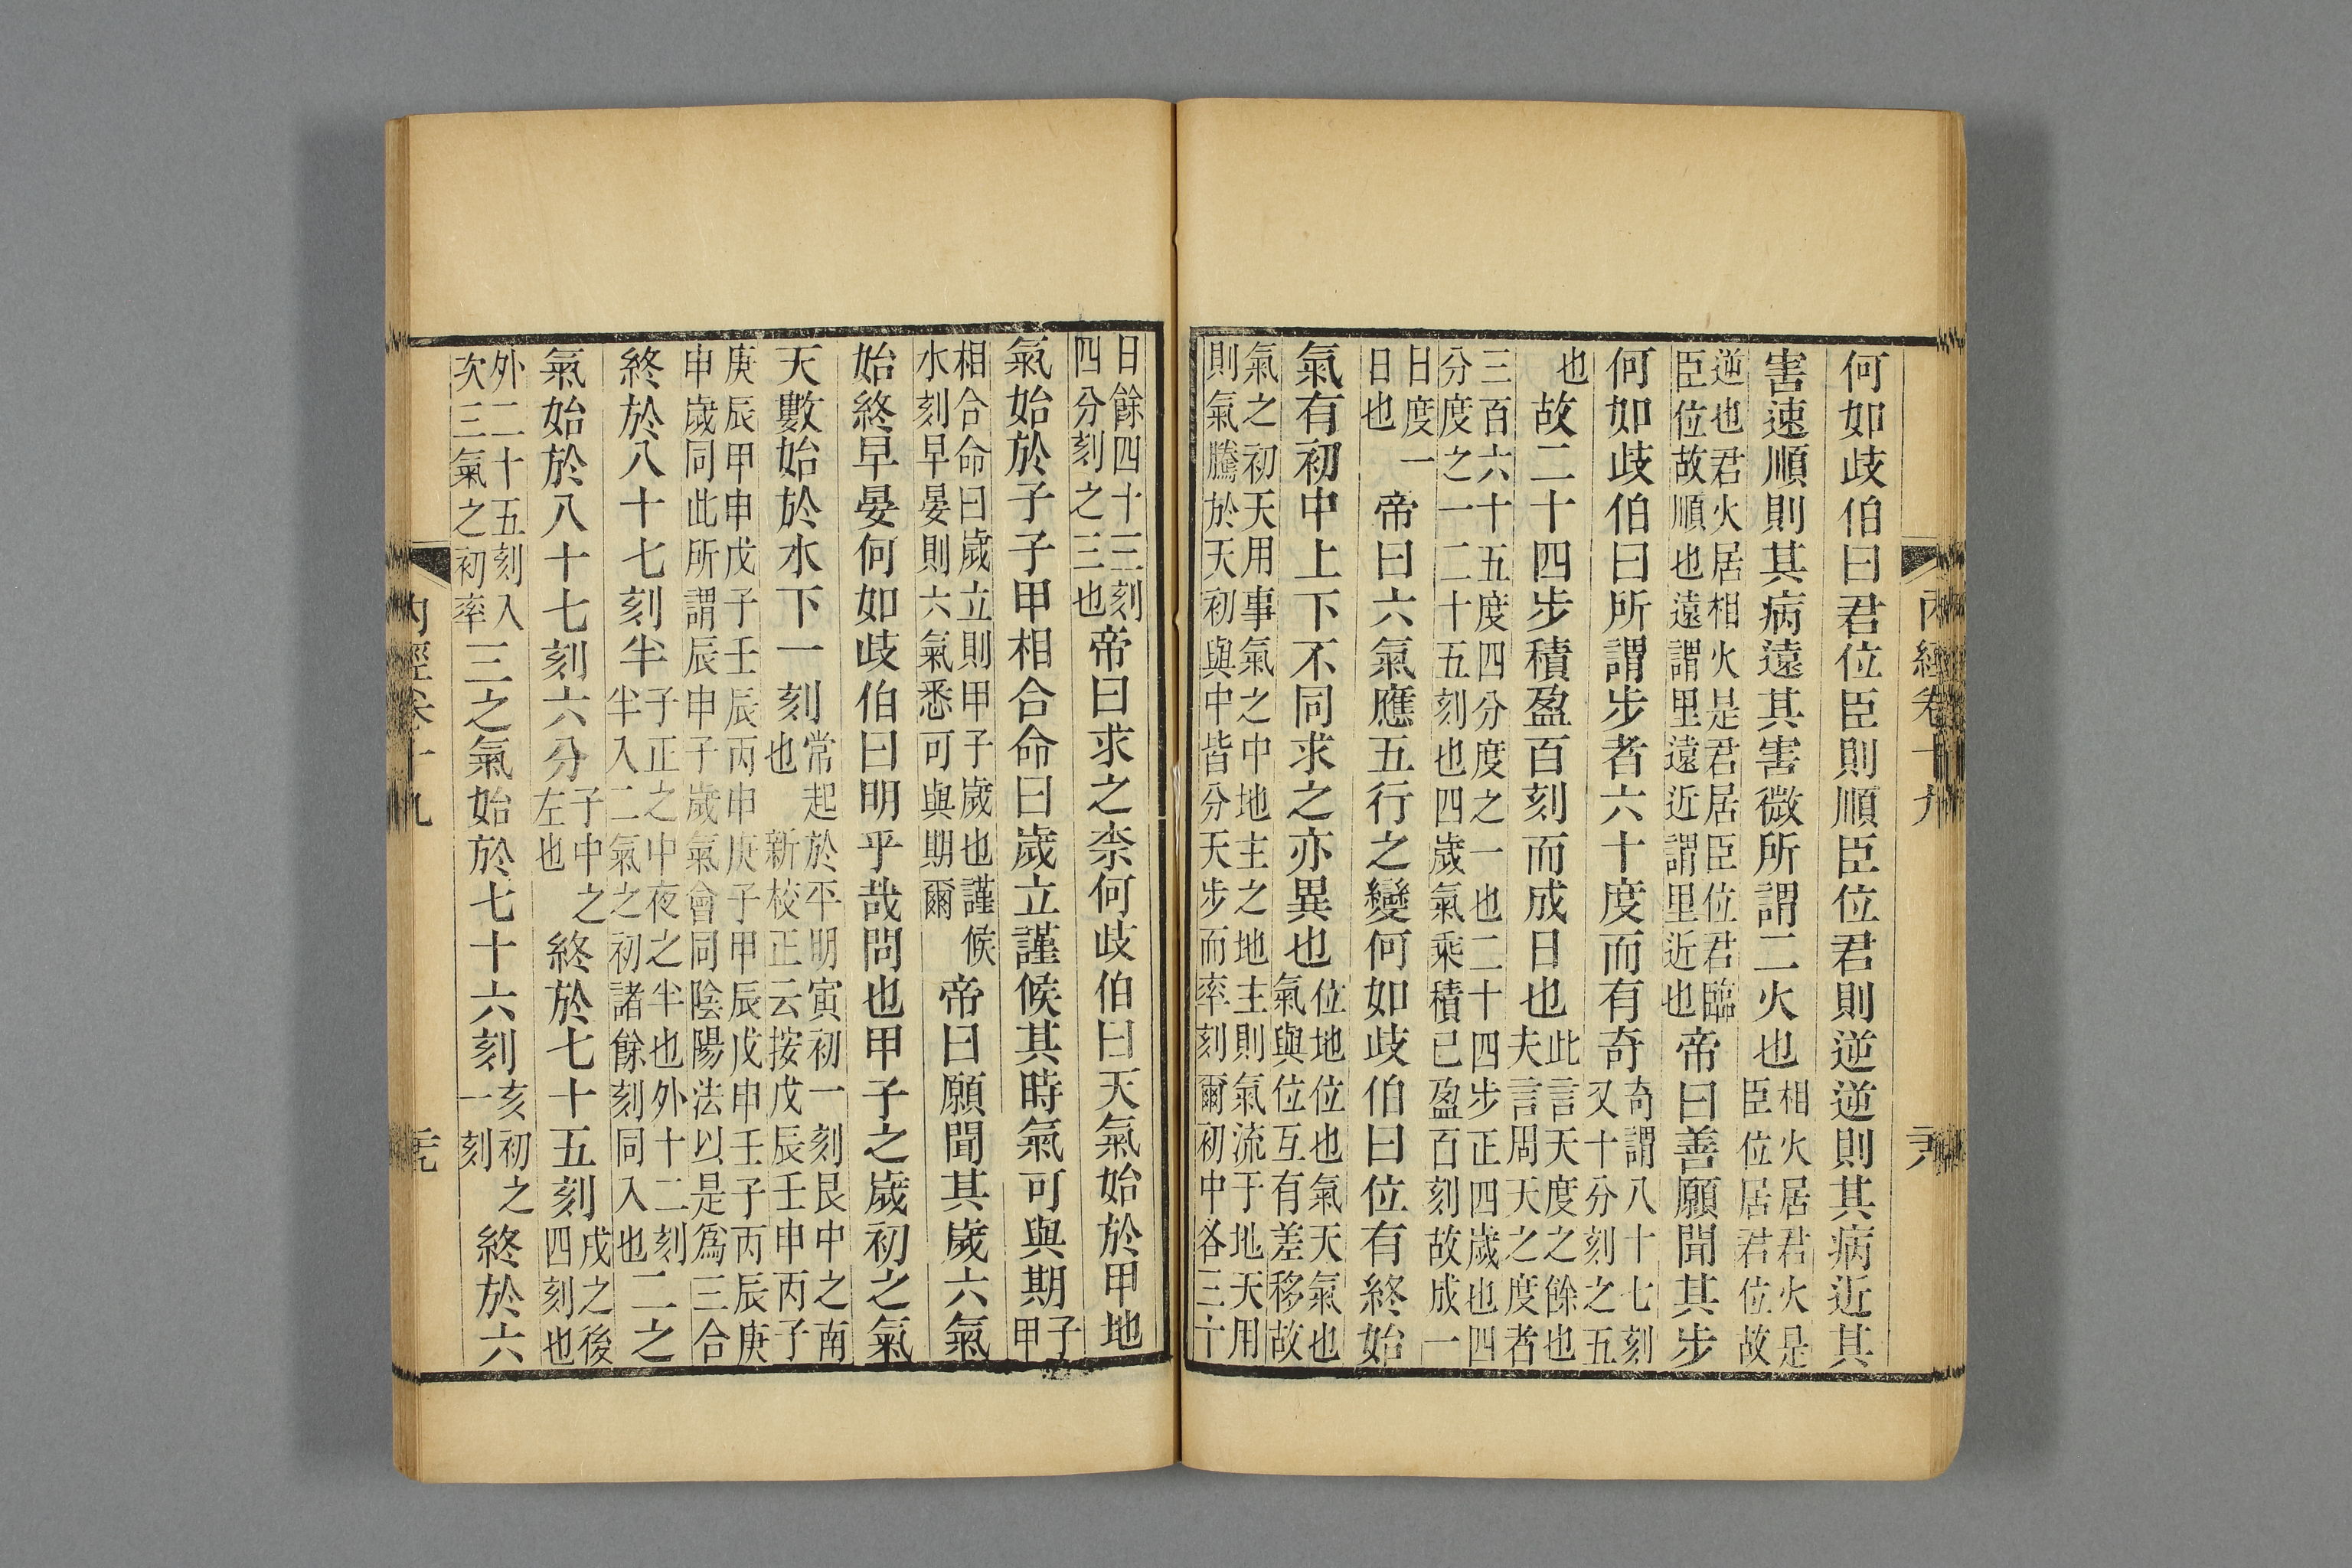 內經卷十九
何如歧伯曰君位臣則順臣位君則逆逆則其病近其
害速順則其病遠其害微所謂二火也
相火居君火是
臣位居君位故
逆也君火居相火是君居臣位君臨
臣位故順也遠謂里遠近謂里近也
帝曰善願聞其步
何如歧伯曰所謂步者六十度而有奇
奇謂八十七刻
又十分刻之五
也
故二十四步積盈百刻而成日也
此言天度之餘也
夫言周天之度者
三百六十五度四分度之一也二十四步正四歲也四
分度之一二十五刻也四歲氣乘積已盈百刻故成一
日度一
日也
帝曰六氣應五行之變何如歧伯曰位有終始
氣有初中上下不同求之亦異也
位地位也氣天氣也
氣與位互有差移故
氣之初天用事氣之中地主之地主則氣流于地天用
則氣騰於天初與中皆分天步而率刻爾初中各三十
日餘四十三刻
四分刻之三也
帝曰求之柰何歧伯曰天氣始於甲地
氣始於子子甲相合命曰歲立謹候其時氣可與期
子
甲
相合命曰歲立則甲子歲也謹候
水刻早晏則六氣悉可與期爾
帝曰願聞其歲六氣
始終早晏何如歧伯曰明乎哉問也甲子之歲初之氣
天數始於水下一刻
常起於平明寅初一刻艮中之南
也 新校正云按戊辰壬申丙子
庚辰甲申戊子壬辰丙申庚子甲辰戊申壬子丙辰庚
申歲同此所謂辰申子歲氣會同陰陽法以是爲三合
終於八十七刻半
子正之中夜之半也外十二刻
半入二氣之初諸餘刻同入也
二之
氣始於八十七刻六分
子中之
左也
終於七十五刻
戌之後
四刻也
外二十五刻入
次三氣之初率
三之氣始於七十六刻
亥初之
一刻
終於六
內經卷十九